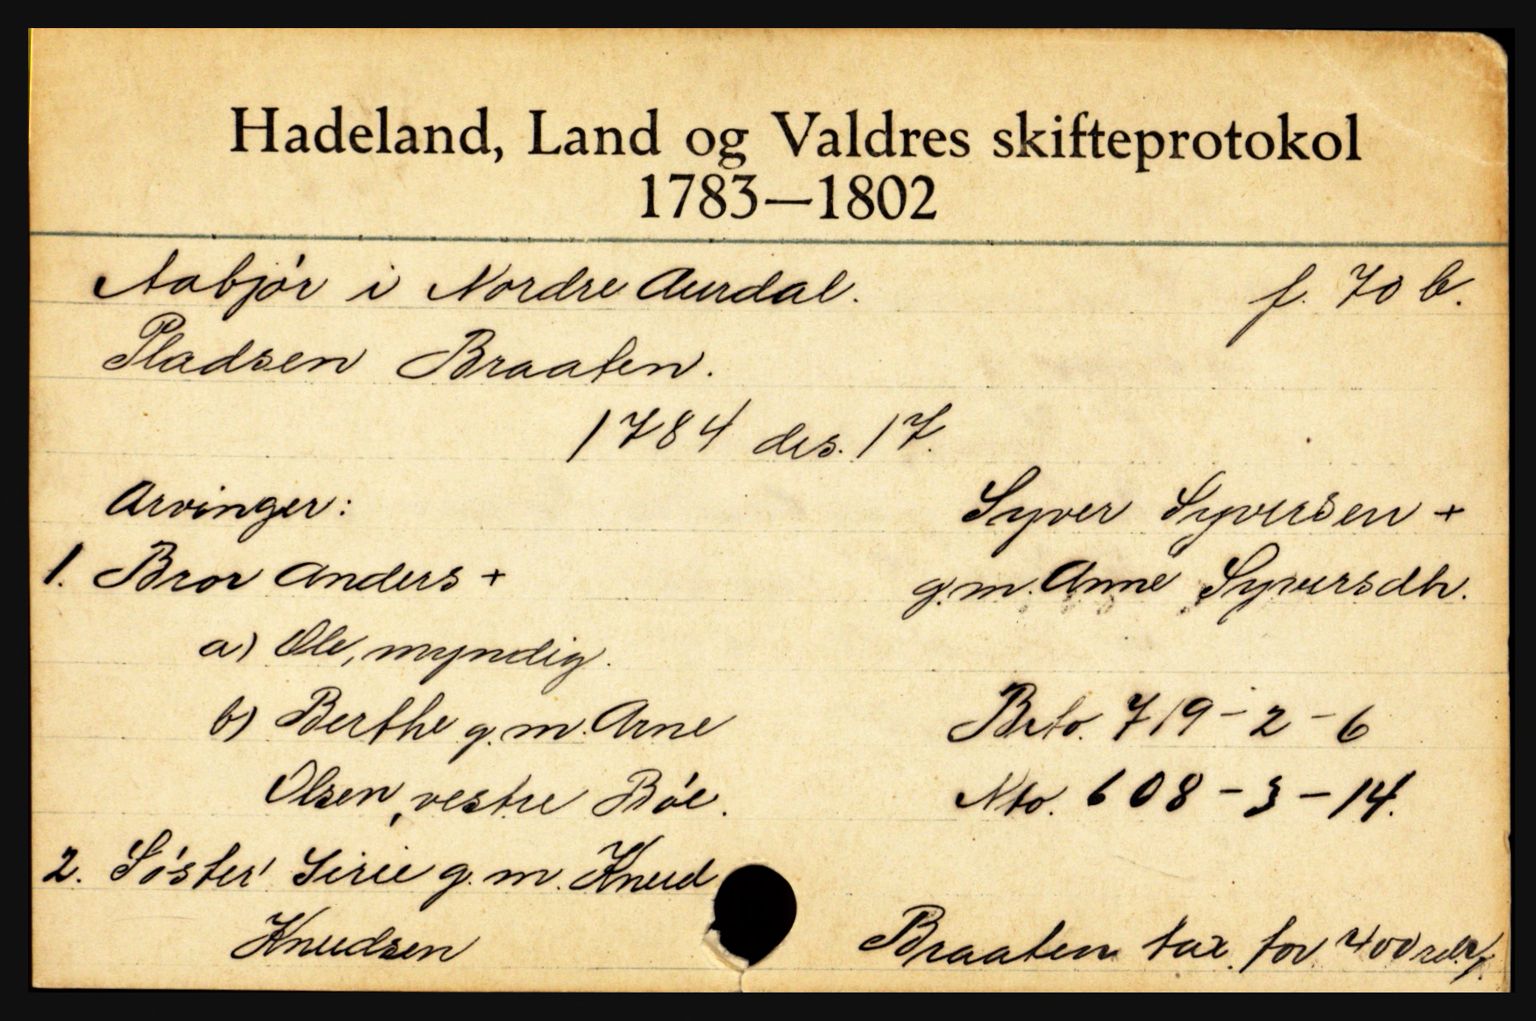 Hadeland, Land og Valdres skifteprotokol
1783—1802
Aabjór i Nordre Aurdal. f. 70 b.
Pladsen Braaten.
1784 des. 17.
Arvinger: Syver Syversen +
1. Bror Anders + g.m. Anne Syversdtr.
a) Ole, myndig.
b) Berthe g.m. Arne Brto. 719 - 2 - 6
Olsen, vestre Bóe. Nto. 608 - 3 - 14.
2. Sóster Sirie g.m. Knud
Knudsen Braaten tax. for 400 rdlr.